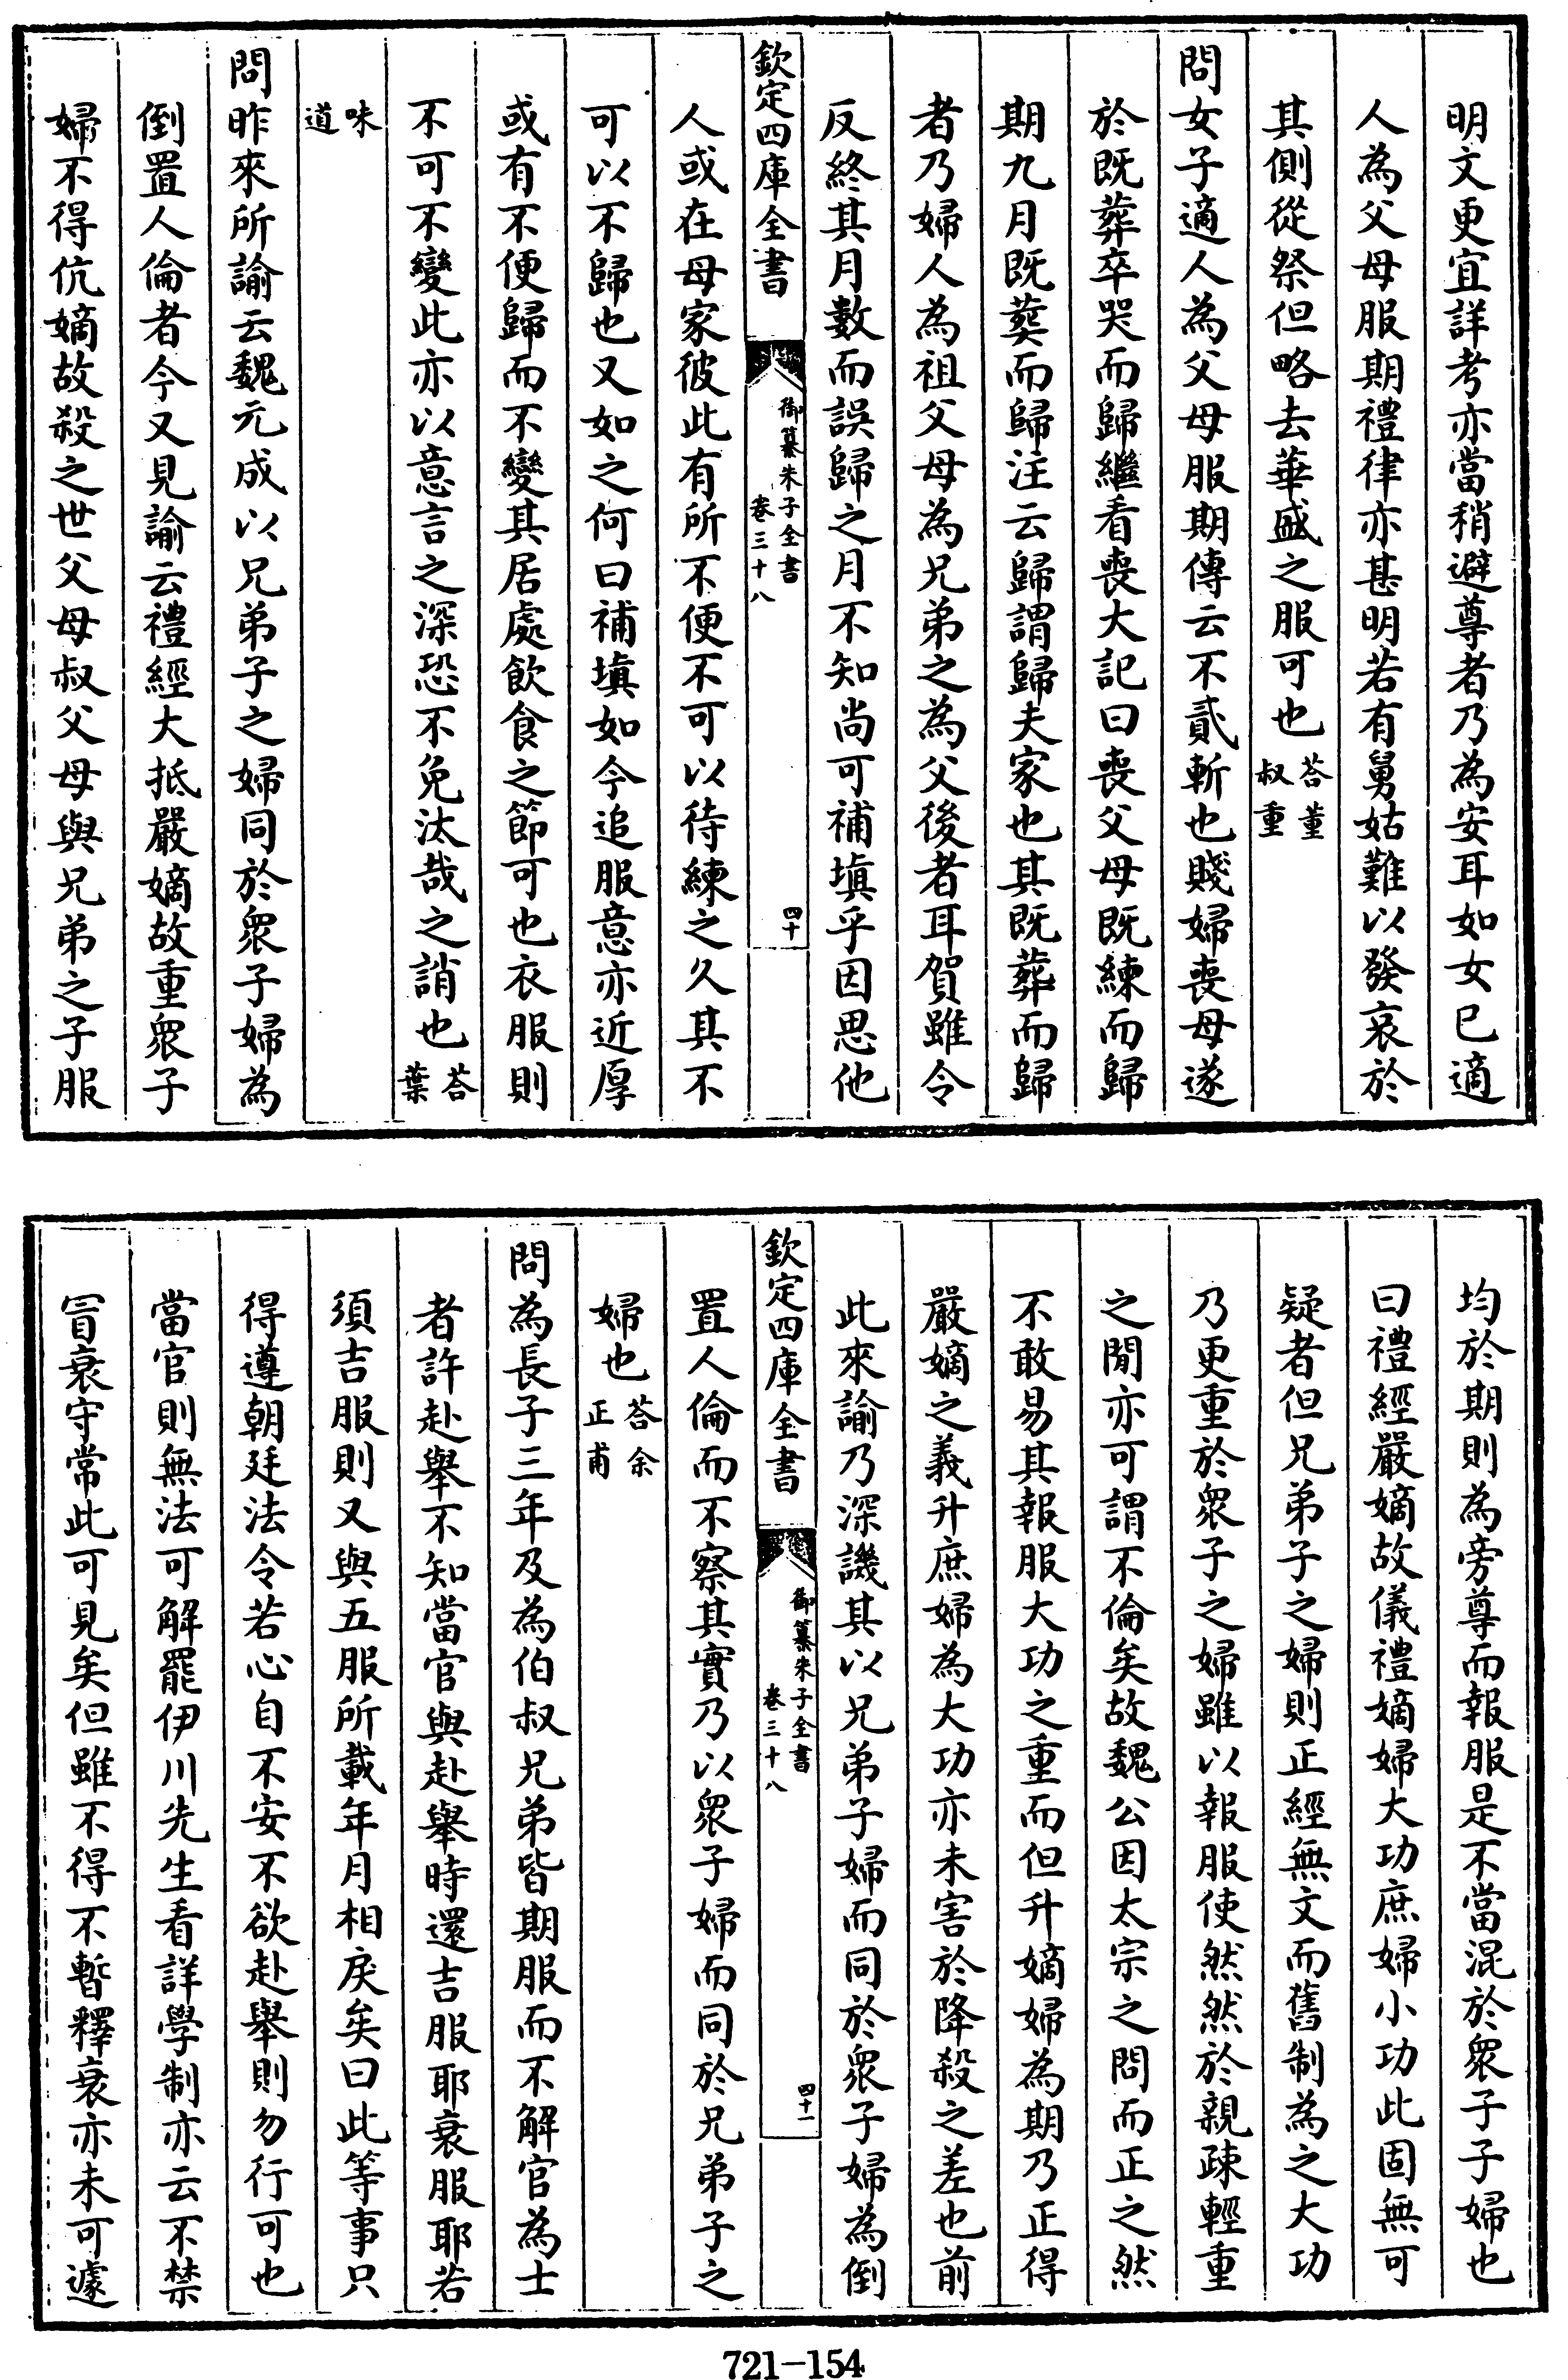 明文更宜詳考亦當稍避尊者乃為安耳如女已適
人為父母服期禮律亦甚明若有舅姑難以發哀於
其側從祭但略去華盛之服可也答董叔重
問女子適人為父母服期傳云不貳斬也賤婦喪母遂
於既葬卒哭而歸繼看喪大記曰喪父母既練而歸
期九月既葬而歸注云歸謂歸夫家也其既葬而歸
者乃婦人為祖父母為兄弟之為父後者耳賀雖令
反終其月數而誤歸之月不知尚可補填乎因思他
欽定四庫全書 御纂朱子全書 卷三十八 四十
人或在母家彼此有所不便不可以待練之久其不
可以不歸也又如之何曰補填如今追服意亦近厚
或有不便歸而不變其居處飲食之節可也衣服則
不可不變此亦以意言之深恐不免汰哉之誚也答葉
味道
問昨來所諭云魏元成以兄弟子之婦同於衆子婦為
倒置人倫者今又見諭云禮經大抵嚴嫡故重衆子
婦不得伉嫡故殺之世父母叔父母與兄弟之子服
均於期則為旁尊而報服是不當混於衆子子婦也
曰禮經嚴嫡故儀禮嫡婦大功庶婦小功此固無可
疑者但兄弟子之婦則正經無文而舊制為之大功
乃更重於衆子之婦雖以報服使然然於親疎輕重
之閒亦可謂不倫矣故魏公因太宗之問而正之然
不敢易其報服大功之重而但升嫡婦為期乃正得
嚴嫡之義升庶婦為大功亦未害於降殺之差也前
此來諭乃深譏其以兄弟子婦而同於衆子婦為倒
欽定四庫全書 御纂朱子全書 卷三十八 四十一
置人倫而不察其實乃以衆子婦而同於兄弟子之
婦也答余正甫
問為長子三年及為伯叔兄弟皆期服而不解官為士
者許赴舉不知當官與赴舉時還吉服耶衰服耶若
須吉服則又與五服所載年月相戾矣曰此等事只
得遵朝廷法令若心自不安不欲赴舉則勿行可也
當官則無法可解罷伊川先生看詳學制亦云不禁
冒衰守常此可見矣但雖不得不暫釋衰亦未可遽
721-154